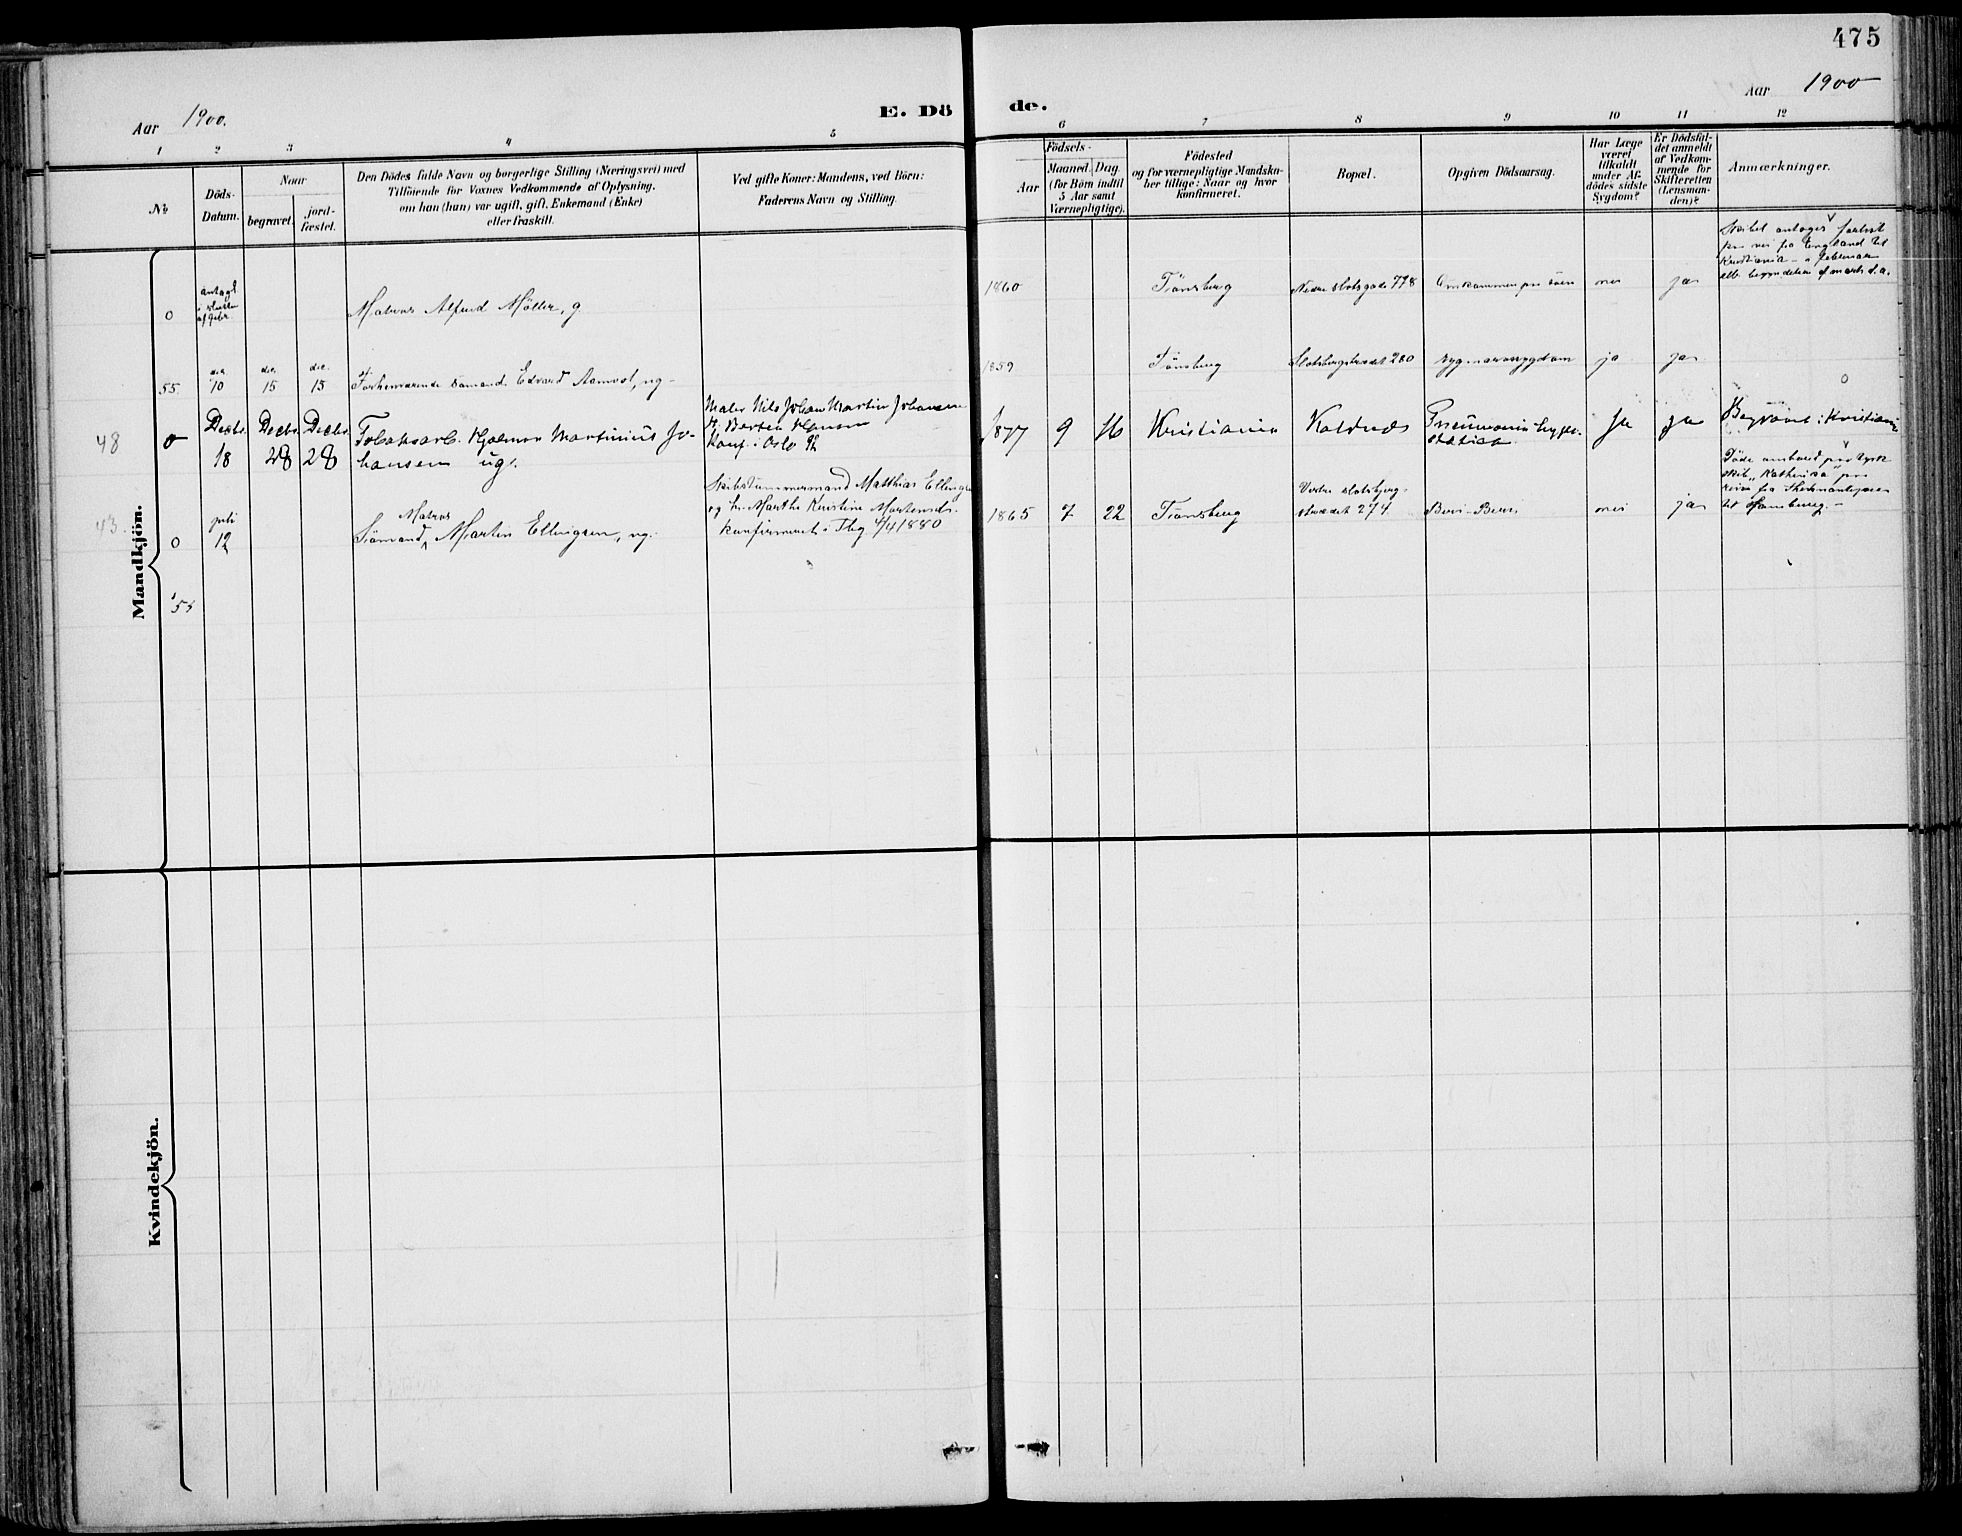 475
Aar 1900.
E. Dö
de.
Aar 1900
1
2
3
4
5
6
7
8
9
10
11
12
No
Döds-
Datum.
Naar
begravet.
jord-
fæstet.
Den Dödes fulde Navn og borgerlige Stilling (Næringsvei) med
Tilföiende for Voxnes Vedkommende af Oplysning,
om han (hun) var ugift, gift, Enkemand (Enke)
eller fraskilt.
Ved gifte Koner: Mandens, ved Börn:
Faderens Navn og Stilling.
Aar
Födsels-
Maaned.
Dag.
(for Börn indtil
5 Aar samt
Værnepligtige).
Födested
og for værnepligtige Mandska-
ber tillige: Naar og hvor
konfirmeret.
Bopæl.
Opgiven Dödsaarsag.
Har Læge
været
tilkaldt
under Af-
dödes sidste
Sygdom?
Er Dödsfal-
det anmeldt
af Vedkom-
mende for
Skifteretten
(Lensman-
den)?
Anmærkninger.
Mandkjön.
0
antagl.
i slutten
af febr.
Matros Alfred Möller, g
1860
Tönsberg
Nedre Slotsgade 778
Omkommen paa söen
nei
ja
Skibet antages forlist
paa rei fra England til
Kristiania i februar
ell. begyndelsen af marts d.a.
55
dec
10
dec.
15
dec.
15
Forhenværende sömand Edvard Aamodt, ug
1859
Tönsberg
Slotsbergstrædet 280
rygmarvssygdom
ja
ja
0
48
0
Decbr.
18
Decbr.
28
Decbr.
28
Tobaksarb. Hjalmar Martinius Jo-
hansen ug.
Maler Nils Johan Martin Johansen
og Berten Hansen
Konf. i Oslo 92
1877
9
16
Kristiania
Kaldnæs
Pneumonia hypo-
statica
Ja
Ja
Begravet i Kristiania
43
0
juli
12
Sömand, Matros Martin Ellingsen, ug.
Skibstømmermand Matthias Ellingsen
og h. Marthe Kristine Mortensd.
konfirmeret i Tbg 4/4 1880
1865
7
22
Tönsberg
Vestre Slotsbjerg-
strædet 274
Beri-Beri
nei
ja
Döde ombord paa tysk
skib "Katherina" paa
reise fra
til Hamburg.
55
Kvindekjön.